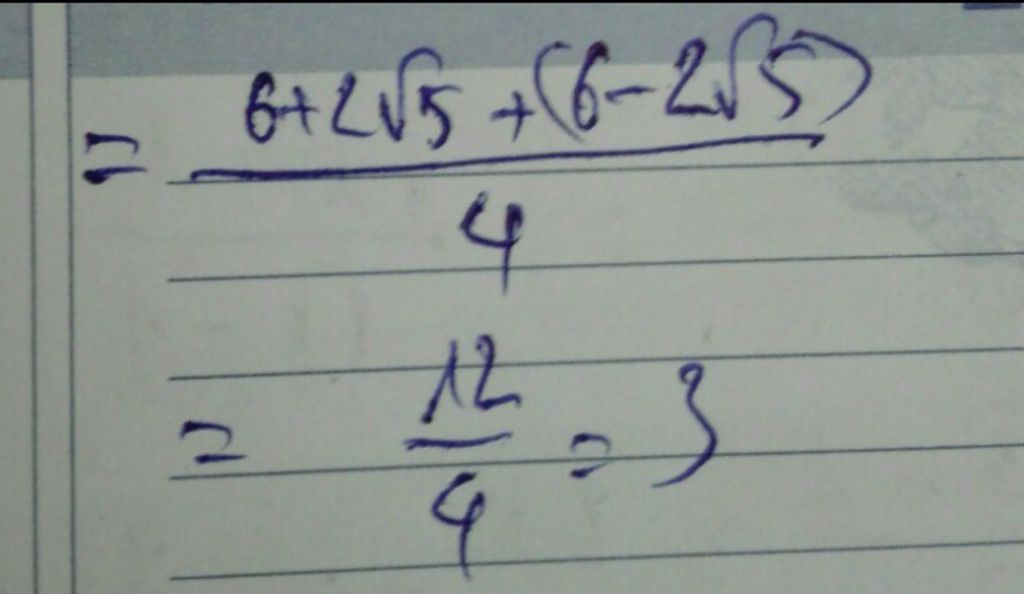 = \frac{6+2\sqrt{5}+(6-2\sqrt{5})}{4}
= \frac{12}{4} = 3